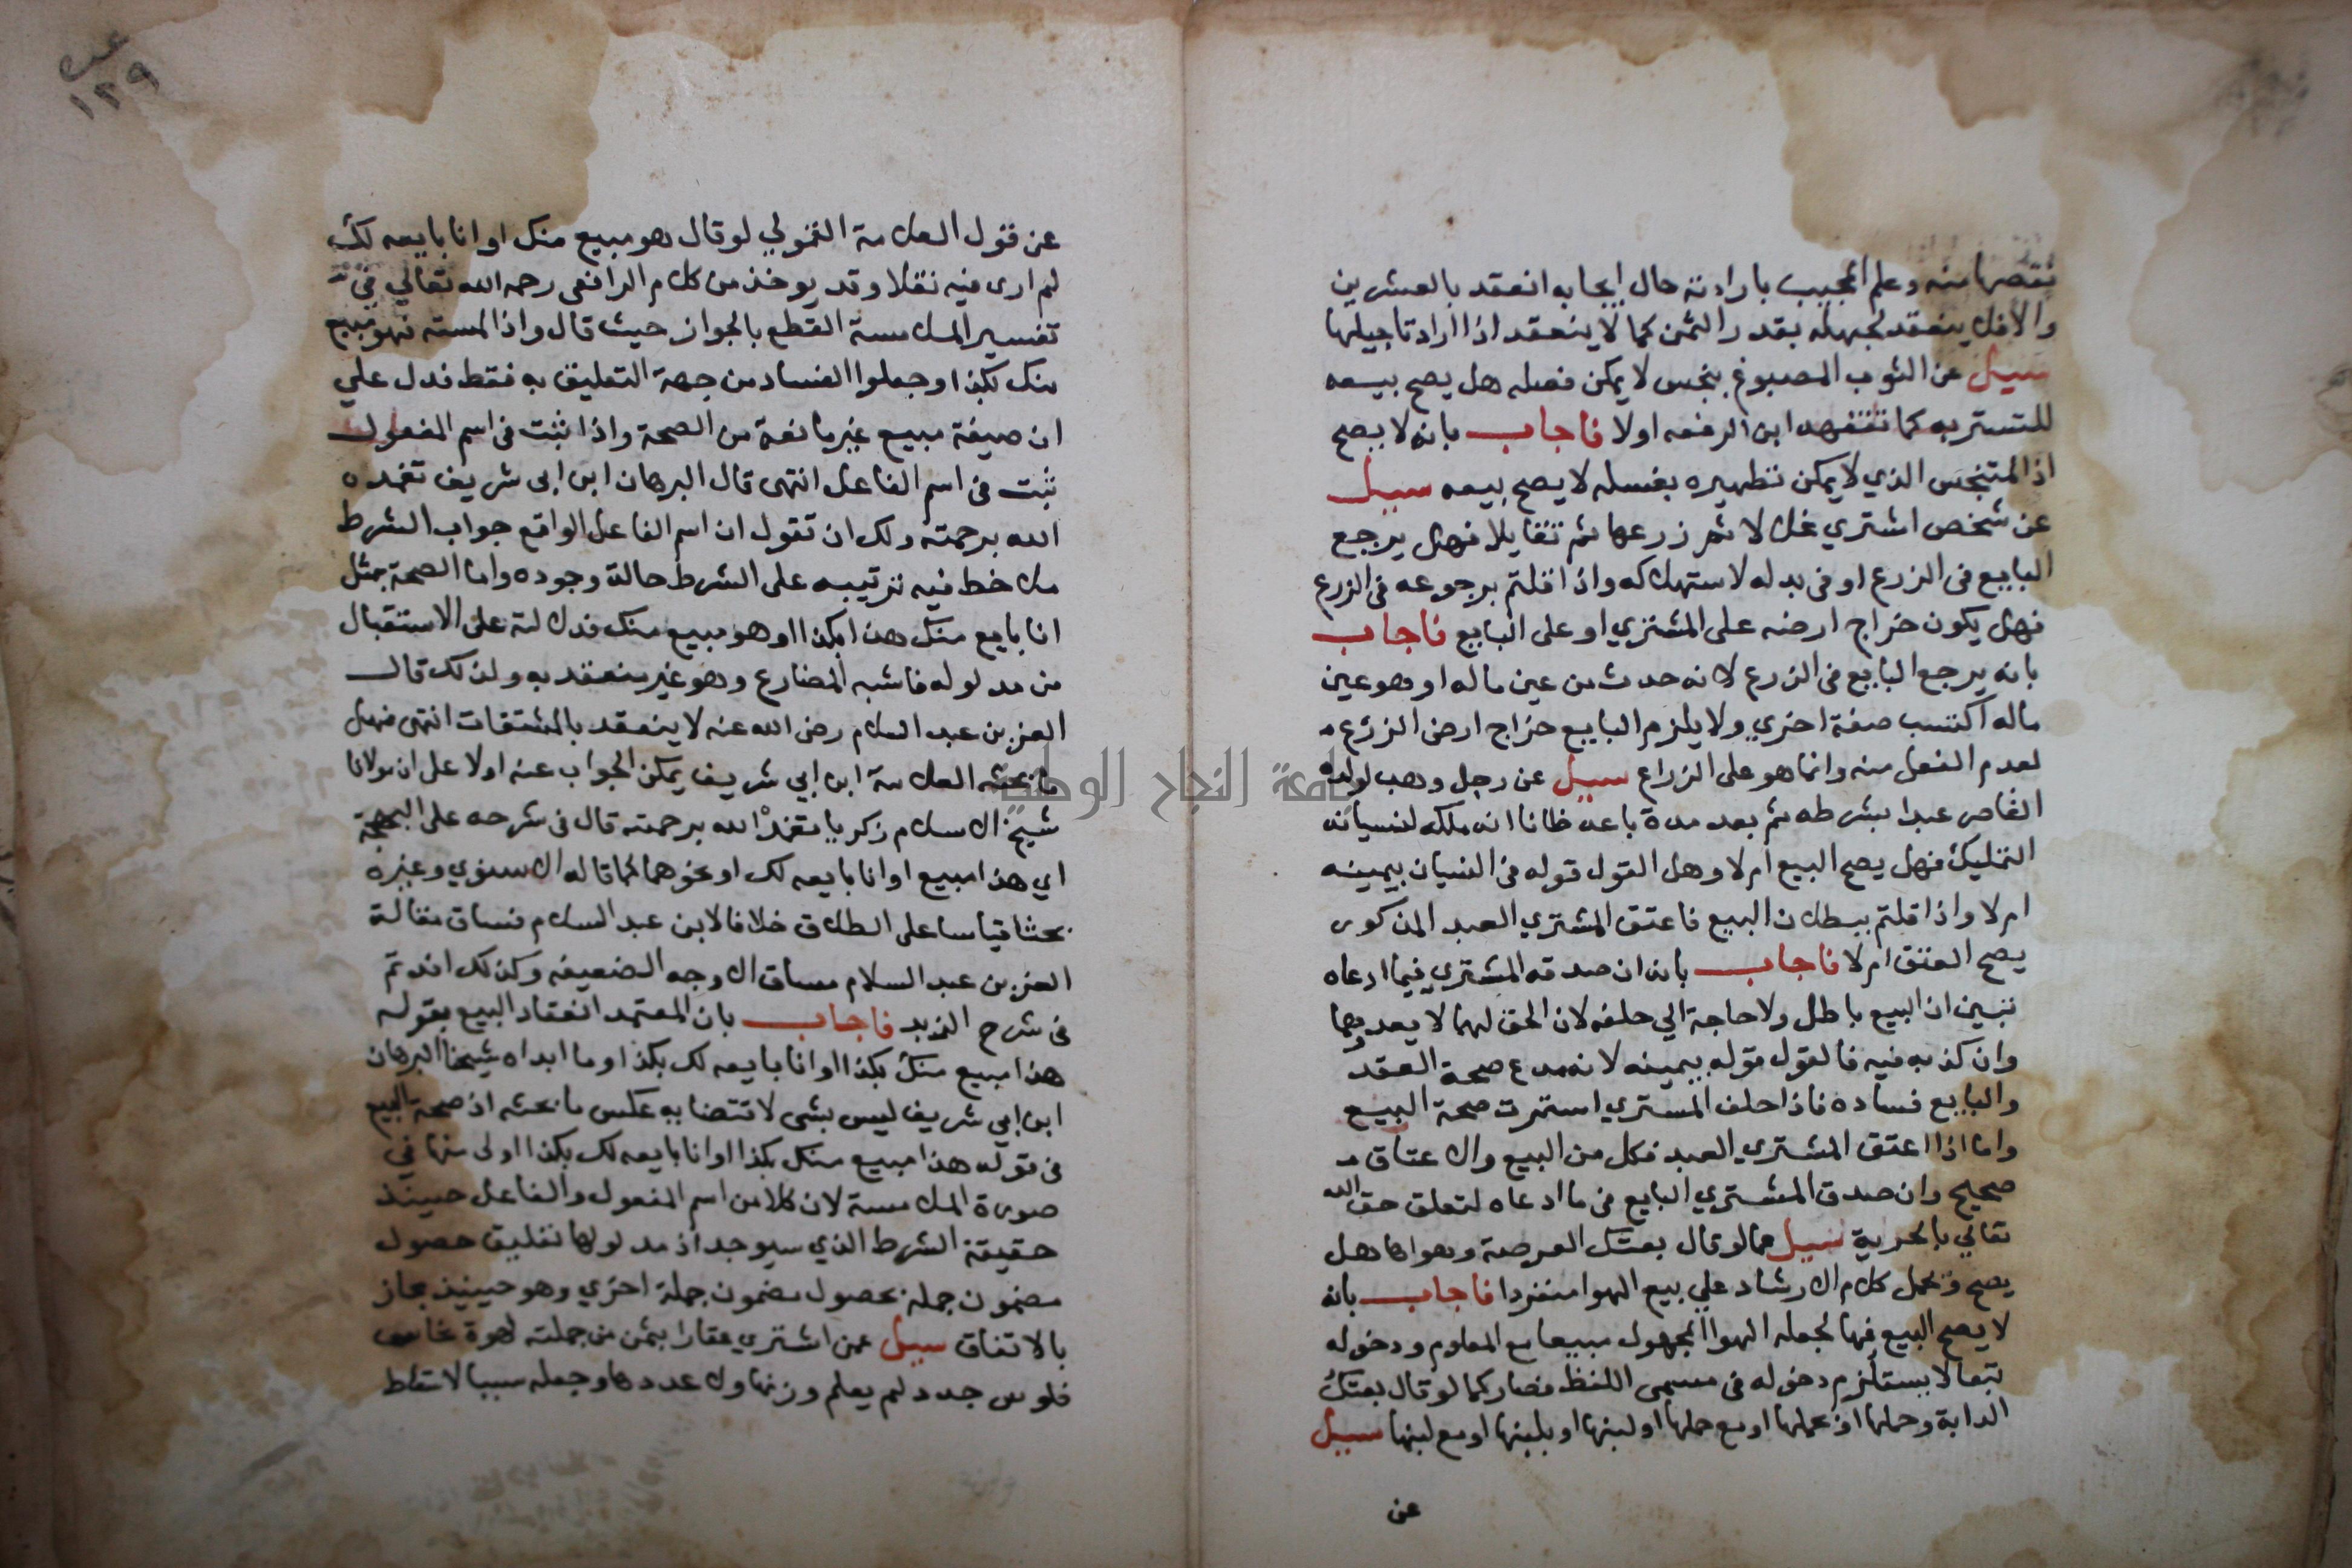 نقصها منه وعلم المجيب بارادته حال ايجابه انعقد بالعشرين
والا فلا ينعقد لجهله بقدر الثمن كما لا ينعقد اذا اراد تاجيلها
سيل عن الثوب المصبوغ بنجس لا يمكن فصله هل يصح بيعه
للتستر به كما تفقهه ابن الرفعه اولا فاجاب بانه لا يصح
اذ المتنجس الذي لا يمكن تطهيره بغسله لا يصح بيعه سيل
عن شخص اشتري غلا لا ثم زرعها ثم تقايلا فهل يرجع
البايع في الزرع او في بدله لاستهلاكه واذا قلتم برجوعه في الزرع
فهل يكون خراج ارضه على المشتري او على البايع فاجاب
بانه يرجع البايع في الزرع لانه حدث من عين ماله او هو عين
ماله اكتسب صفة اخري ولا يلزم البايع خراج ارض الزرع
لعدم الفعل منه وانما هو على الزراع سيل عن رجل وهب لولده
القاصر عبدا بشرطه ثم بعد مدة باعه ظانا انه ملكه لنسيانه
التمليك فهل يصح البيع ام لا وهل القول قوله في النسيان بيمينه
ام لا واذا قلتم ببطلان البيع فاعتق المشتري العبد المذكور
يصح العتق ام لا فاجاب بانه ان صدقه المشتري فيما ادعاه
تبين ان البيع باطل ولا حاجة الي حلفه لان الحق لهما لا يعدوهما
وان كذبه فيه فالقول قوله بيمينه لانه مدع صحة العقد
والبايع فساده فاذا حلف المستري استمرت صحة البيع
واما اذا اعتق المشتري العبد فكل من البيع والاعتاق
صحيح وان صدق المشتري البايع في ما ادعاه لتعلق حق الله
تعالي بالحرية سيل عما لو قال بعتك العرصة وهواها هل
يصح وتحمل كلام الارشاد علي بيع الهوا منفردا فاجاب بانه
لا يصح البيع فيها لجعله الهوا المجهول مبيعا مع المعلوم ودخوله
تبعا لا يستلزم دخوله في مسمى اللفظ فصار كما لو قال بعتك
الدابة وحملها او بحملها او مع حملها او لبنها او بلبنها او مع لبنها سيل
عن
١٢٩
عن قول العلامة القمولي لو قال هو مبيع منك او انا بايعه لك
لم ارى فيه نقلا وقد يوخذ من كلام الرافعي رحمه الله تعالي في
تفسير الملامسة القطع بالجواز حيث قال واذا لمسته فهو مبيع
منك بكذا وجعلوا الفساد من جهة التعليق به فقط فدل علي
ان صيغة مبيع غير مانعة من الصحة واذا ثبت في اسم المفعول
ثبت في اسم الفاعل انتهى قال البرهان ابن ابي شريف تغمده
الله برحمته ولك ان تقول ان اسم الفاعل الواقع جواب الشرط
ملاحظ فيه ترتيبه على الشرط حالة وجوده واما الصحة بمثل
انا بايع منك هذا بكذا او هو مبيع منك فدلالته على الاستقبال
من مدلوله فاشبه المضارع وهو غير منعقد به ولذلك قال
العز بن عبد السلام رضي الله عنه لا ينعقد بالمشتقات انتهى فهل
ما بحثه العلامة ابن ابي شريف يمكن الجواب عنه اولا على ان مولانا
شيخ الاسلام زكريا تغمد الله برحمته قال في شرحه على البهجة
اي هذا مبيع او انا بايعه لك او نحوهما كما قاله الاسنوي وغيره
بحثا قياسا على الطلاق خلافا لابن عبد السلام فساق مقالة
العز بن عبد السلام مساق الاوجه الضعيفه وكذلك افدتم
في شرح الزبد فاجاب بان المعتمد انعقاد البيع بقوله
هذا مبيع منك بكذا او انا بايعه لك بكذا وما ابداه شيخنا البرهان
ابن ابي شريف ليس بشي لاقتضايه عكس ما بحثه اذ صحة البيع
في قوله هذا مبيع منك بكذا او انا بايعه لك بكذا اولى منها في
صورة الملامسة لان كلا من اسم المفعول والفاعل حينئذ
حقيقة الشرط الذي سيوجد اذ مدلولها تعليق حصول
مضمون جملة بحصول مضمون جملة اخري وهو حينيذ مجاز
بالاتفاق سيل عمن اشتري عقارا بثمن من جملته صرة نحاس
فلوس جدد لم يعلم وزنها ولا عددها وجعله سببا لاسقاط
جامعة النجاح الوطنية